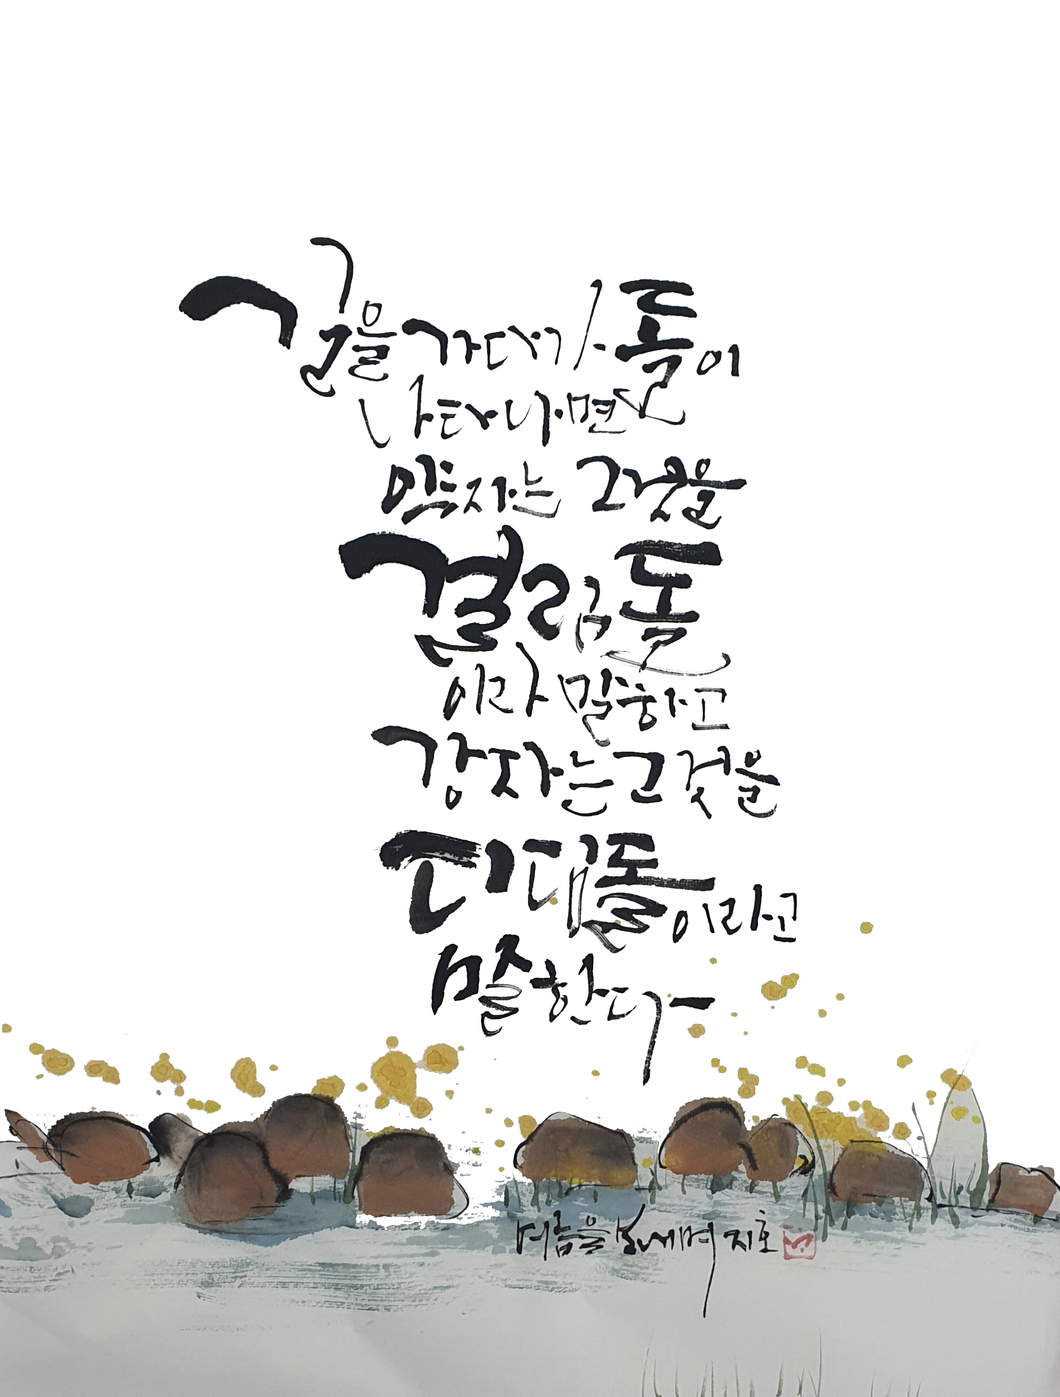 길을 가다가 돌이
나타나면
약자는 그것을
걸림돌
이라 말하고
강자는 그것을
디딤돌이라고
말한다
여름을 보내며 지호